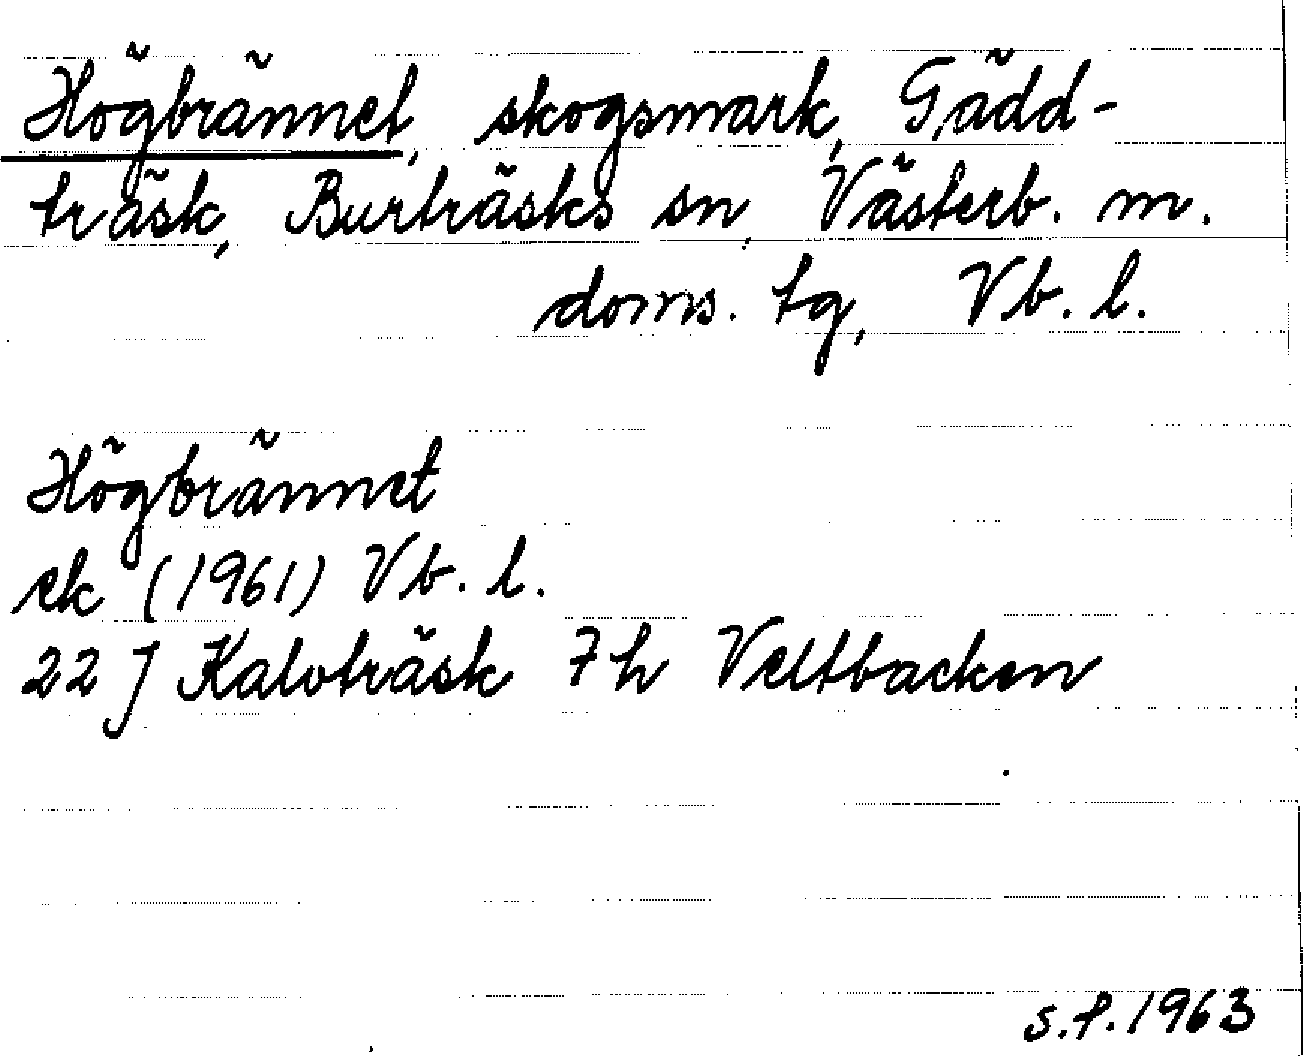 Högbrännet, skogsmark, Gädd-
träsk, Burträsks sn, Västerb. m.
doms. tg, Vb. l.
Högbrännet
ek (1961) Vb. l.
22 J Kalvträsk 7 h Veltbacken
s.f. 1963